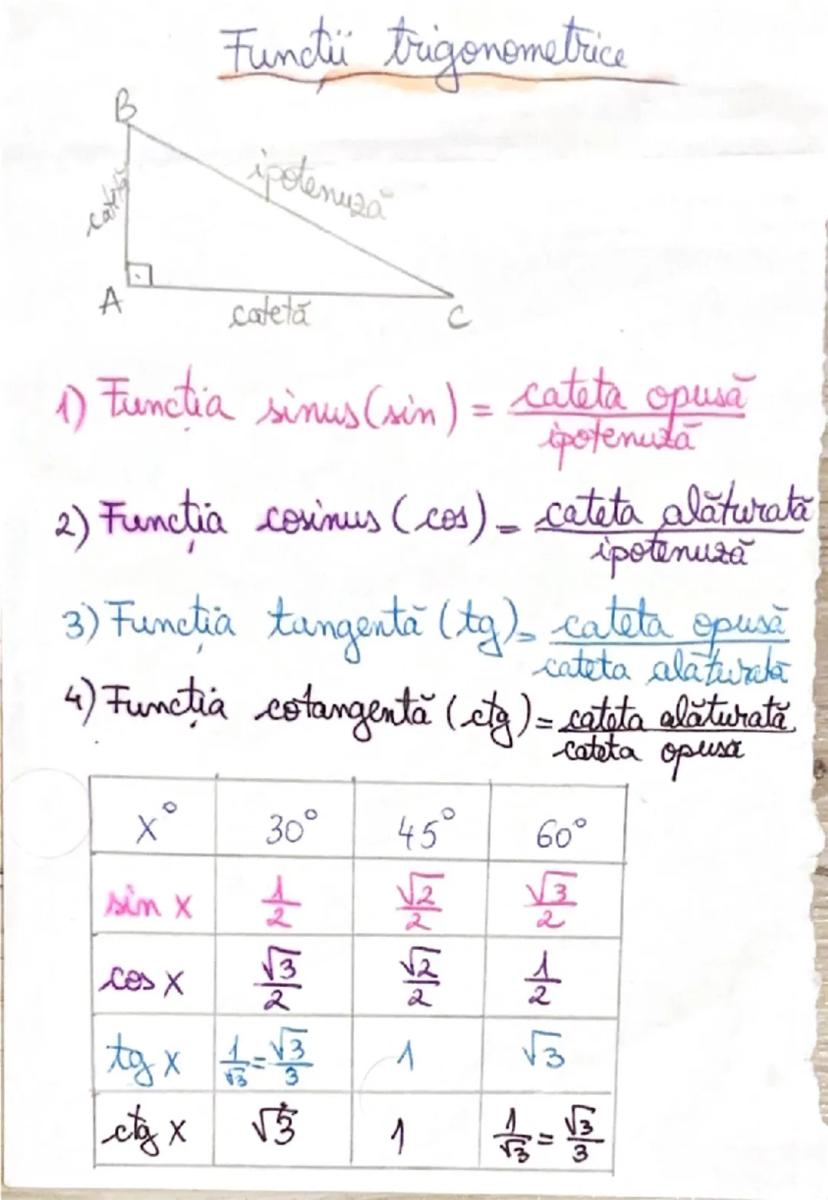 Funcții trigonometrice
B
catetă
ipotenuză
A
catetă
C
1) Funcția sinus (sin) = cateta opusă / ipotenuză
2) Funcția cosinus (cos) = cateta alăturată / ipotenuză
3) Funcția tangentă (tg) = cateta opusă / cateta alăturată
4) Funcția cotangentă (ctg) = cateta alăturată / cateta opusa
x° 30° 45° 60°
sin x 1/2 √2/2 √3/2
cos x √3/2 √2/2 1/2
tg x 1/√3 = √3/3 1 √3
ctg x √3 1 1/√3 = √3/3